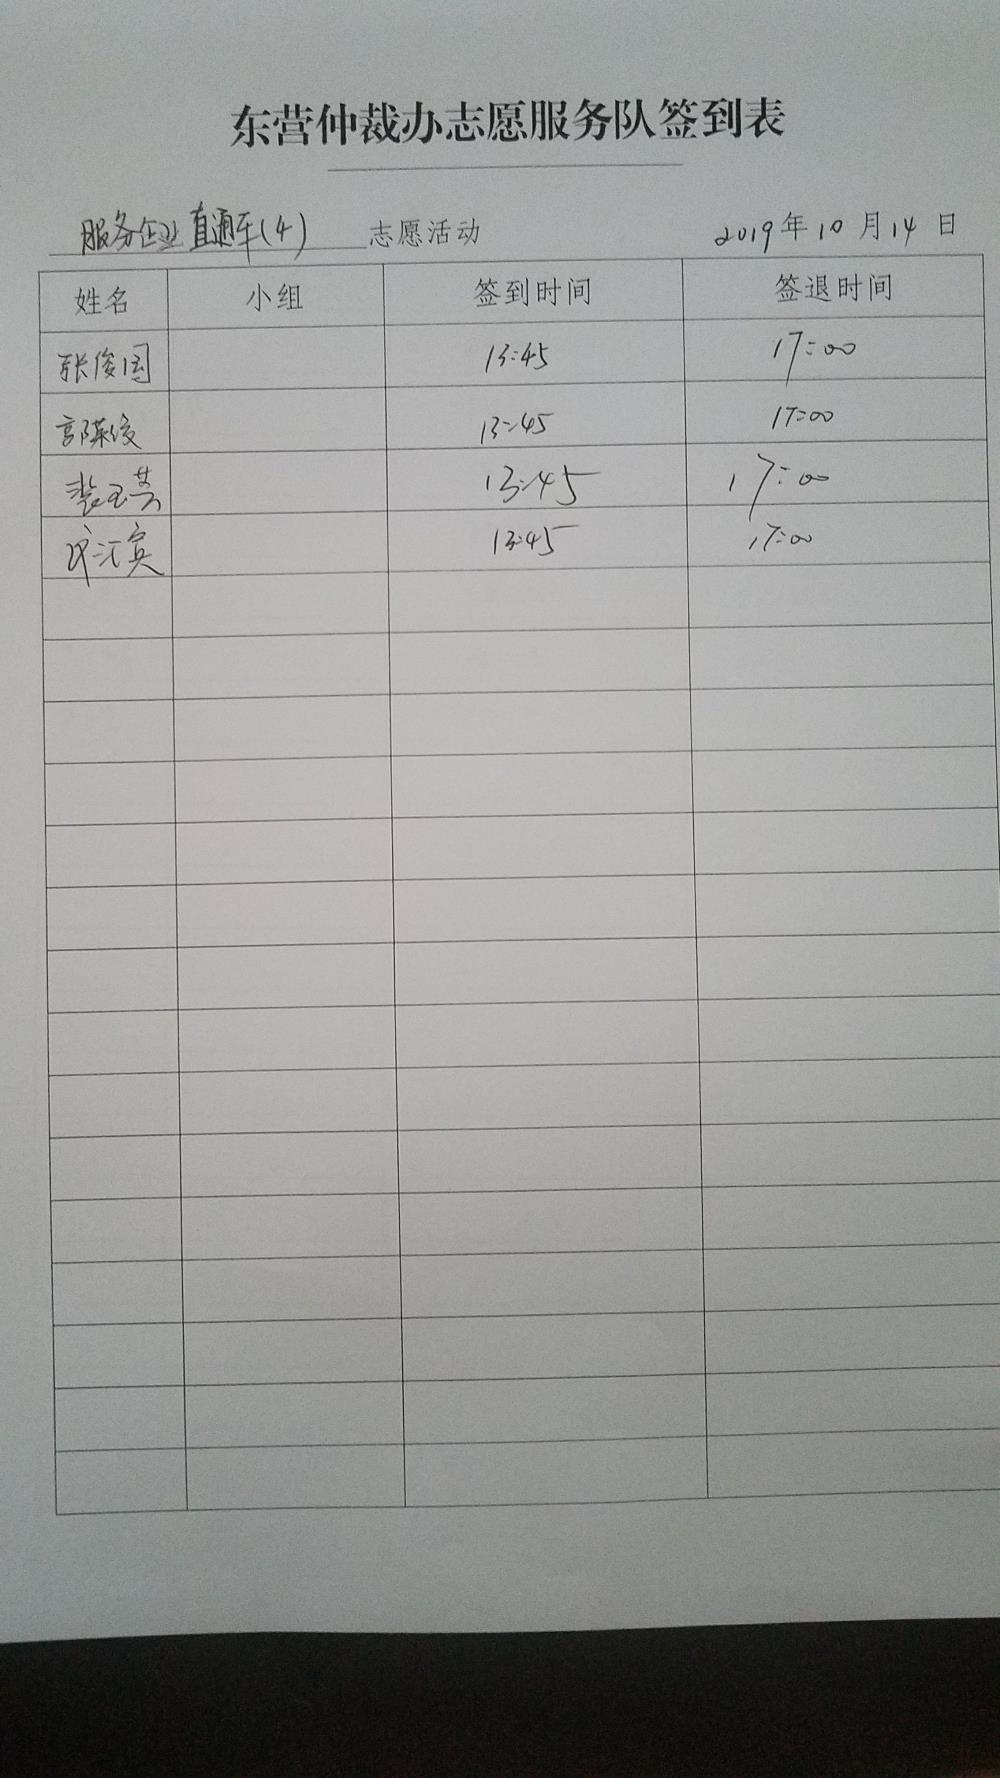 东营仲裁办志愿服务队签到表
服务企业直通车(4) 志愿活动 2019年10月14日
姓名 小组 签到时间 签退时间
张俊国 13:45 17:00
13:45 17:00
13:45 17:00
13:45 17:00